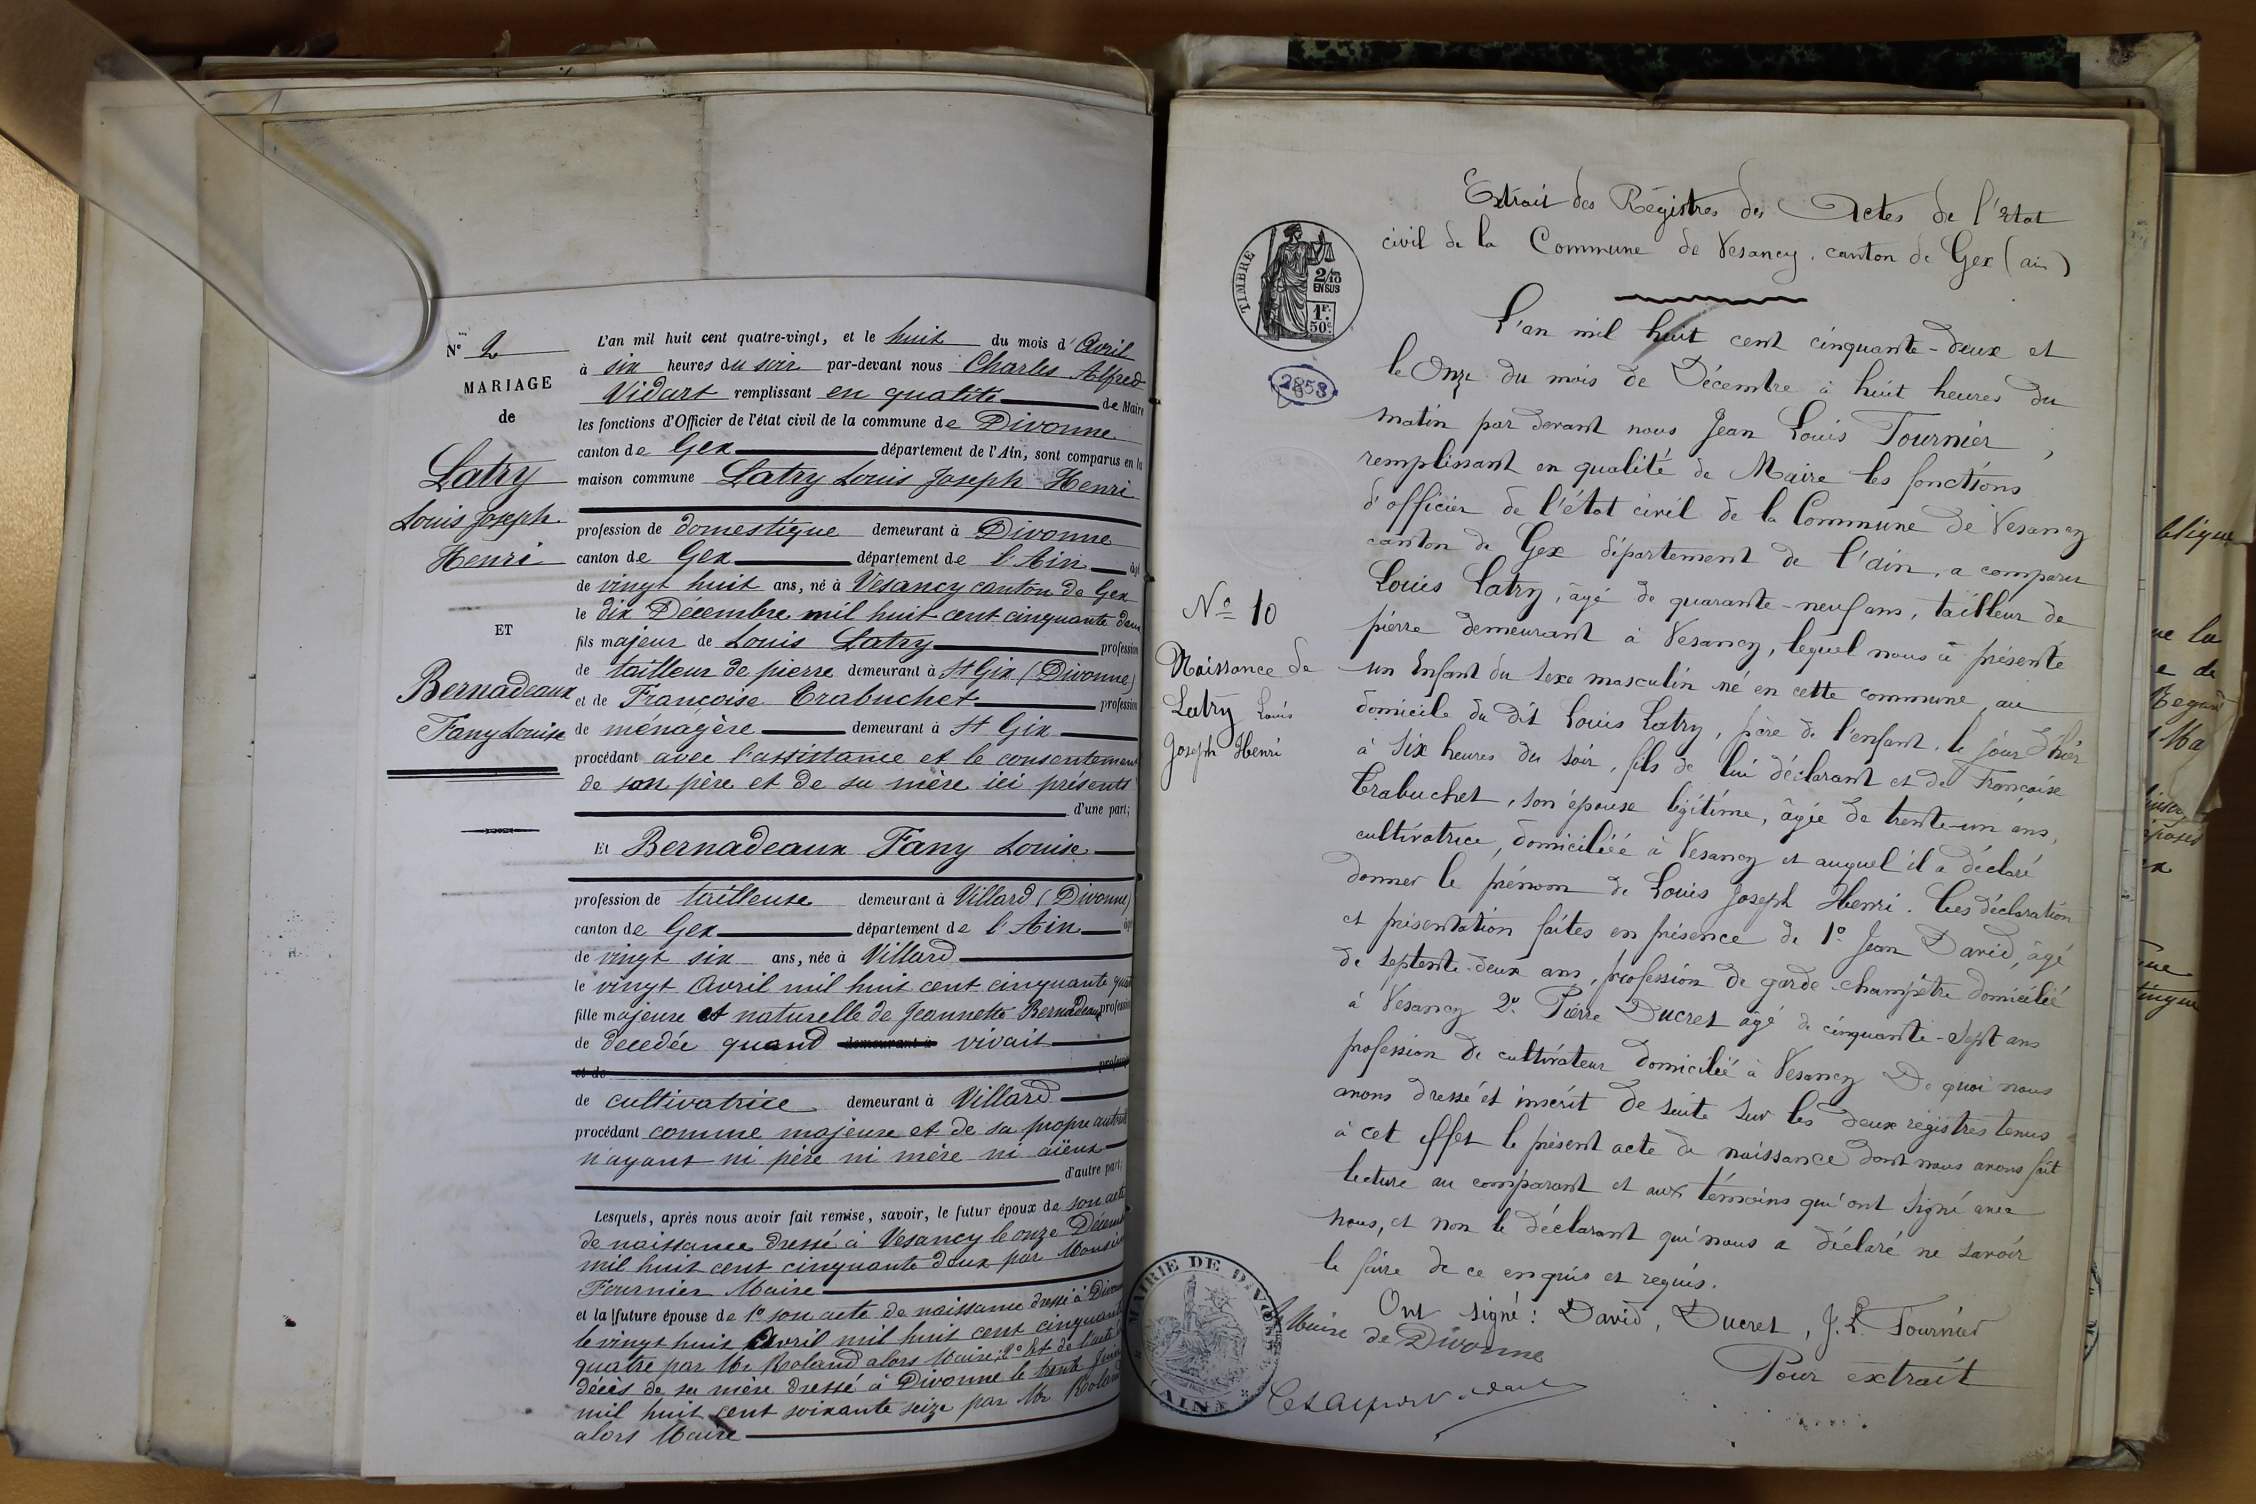 N° 2
MARIAGE
de
Latry
Louis Joseph
Henri
ET
Bernadeaux
Fany Louise
L'an mil huit cent quatre-vingt, et le huit du mois d'Avril
à six heures du soir par-devant nous Charles Alfred
Vidart remplissant en qualité de Maire
les fonctions d'Officier de l'état civil de la commune de Divonne
canton de Gex département de l'Ain, sont comparus en la
maison commune Latry Louis Joseph Henri
profession de domestique demeurant à Divonne
canton de Gex département de l'Ain âgé
de vingt huit ans, né à Vesancy canton de Gex
le dix Décembre mil huit cent cinquante deux
fils majeur de Louis Latry profession
de tailleur de pierre demeurant à St Gix (Divonne)
et de Francoise Trabuchet profession
de ménagère demeurant à St Gix
procédant avec l'assistance et le consentement
de son père et de sa mère ici présents
d'une part;
Et Bernadeaux Fany Louise
profession de tailleuse demeurant à Villard (Divonne)
canton de Gex département de l'Ain âgée
de vingt six ans, née à Villard
le vingt Avril mil huit cent cinquante quat
fille majeure et naturelle de Jeannette Bernadeaux profession
de decedée quand demeurant à vivait
et de profession
de cultivatrice demeurant à Villard
procédant comme majeure et de sa propre autorit
n'ayant ni père ni mère ni aïeux
d'autre part;
Lesquels, après nous avoir fait remise, savoir, le futur époux de son acte
de naissance dressé à Vesancy le onze Décemb
mil huit cent cinquante deux par Monsieu
Fournier Maire
et la future épouse de 1° son acte de naissance dressé à Divonn
le vingt huit Avril mil huit cent cinquante
quatre par Mr Roland alors Maire; 2° Et de l'acte de
décès de sa mère dressé à Divonne le trente
mil huit cent soixante seize par Mr Roland
alors Maire
Extrait des Régistres des Actes de l'état
civil de la Commune de Vesancy, canton de Gex (ain)
TIMBRE
2/10
EN SUS
1F.
50c
2853
N° 10
Naissance de
Latry Louis
Joseph Henri
L'an mil huit cent cinquante-deux et
le Onze du mois de Décembre à huit heures du
matin par devant nous Jean Louis Tournier,
remplissant en qualité de Maire les fonctions
d'officier de l'état civil de la Commune de Vesancy
canton de Gex département de l'ain, a comparu
Louis Latry, âgé de quarante-neuf ans, tailleur de
pierre demeurant à Vesancy, lequel nous a présenté
un Enfant du sexe masculin né en cette commune, au
domicile du dit Louis Latry, père de l'enfant, le jour d'hier
à six heures du soir, fils de lui déclarant et de Françoise
Trabuchet, son épouse légitime, âgée de trente-un ans,
cultivatrice, domiciliée à Vesancy et auquel il a déclaré
donner le prénom de Louis Joseph Henri. Ces déclaration
et présentation faites en présence de 1° Jean David, âgé
de septente-deux ans, profession de garde-champêtre domicilié
à Vesancy 2° Pierre Ducret âgé de cinquante-sept ans
profession de cultivateur domicilié à Vesancy De quoi nous
avons dressé et inscrit de suite sur les deux régistres tenus
à cet effet le présent acte de naissance dont nous avons fait
lecture au comparant et aux témoins qui ont signé avec
nous, et non le déclarant qui nous a déclaré ne savoir
le faire de ce enquis et requis.
Ont signé: David, Ducret, J. L. Tournier
Pour extrait
Le Maire de Divonne
MAIRIE DE DIVONNE
(AIN)